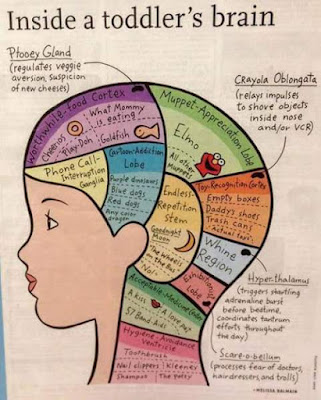 Inside a toddler's brain
Ptooey Gland
(regulates veggie
aversion, suspicion
of new cheeses)
Crayola Oblongata
(relays impulses
to shove objects
inside nose
and/or VCR)
Worthwhile-food Cortex
What Mommy
is eating!
Cheerios
Play-Doh
Goldfish
Muppet-Appreciation Lobe
Elmo
All other
Muppets
Phone Call-
Interruption
Ganglia
Cartoon-Addiction
Lobe
Purple dinosaurs
Blue dogs
Red dogs
Any color
dragon
Endless-
Repetition
stem
Goodnight
Moon
The Wheels
on the Bus
No!
Toy-Recognition Cortex
Empty boxes
Daddy's shoes
Trash cans
Actual toys
Whine
Region
Exhibitionist
Lobe
Acceptable-Medicine Lobe
A kiss
A love pat
57 Band-Aids
Hygiene-Avoidance
Ventricle
Toothbrush
Nail clippers
Kleenex
Shampoo
The potty
Hyper-thalamus
(triggers startling
adrenaline burst
before bedtime,
coordinates tantrum
efforts throughout
the day)
Scare-o-bellum
(processes fear of doctors,
hairdressers, and trolls)
–MELISSA BALMAIN